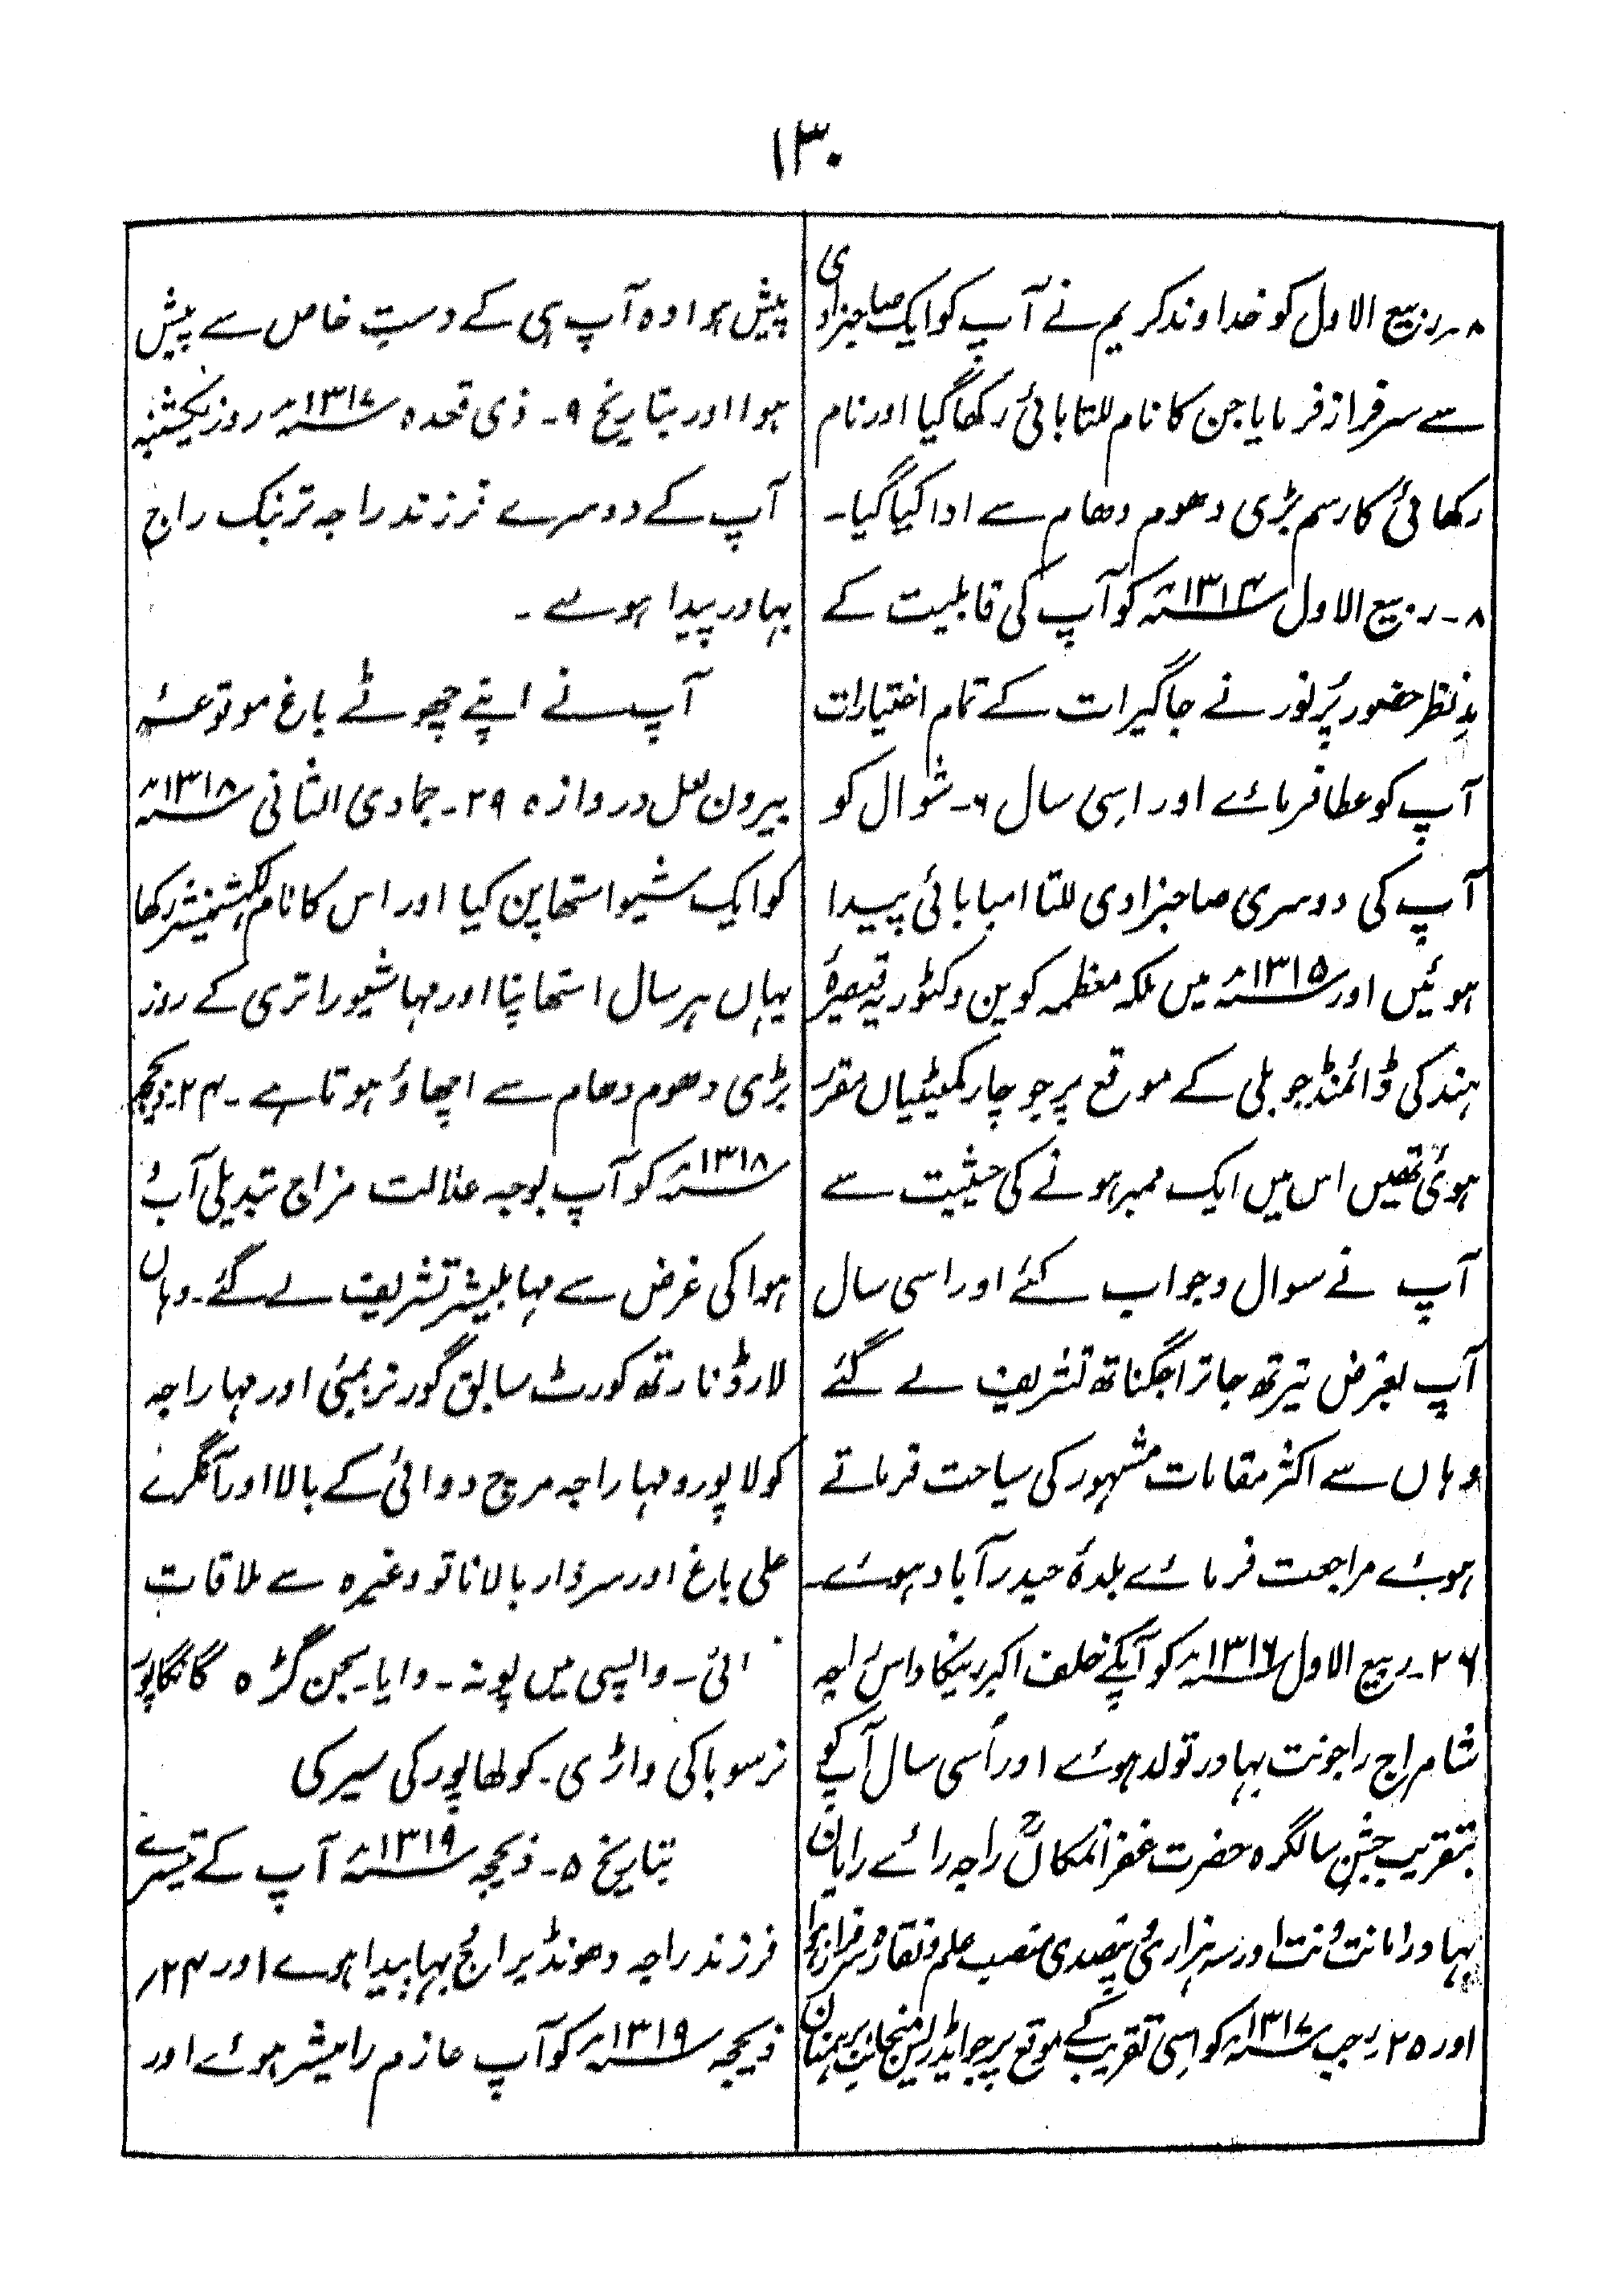 ۱۳۰
۸ ربیع الاول کو خداوند کریم نے آپ کو ایک صاحبزادی
سے سرفراز فرمایا جن کا نام للتا بائی رکھا گیا اور نام
رکھائی کا رسم بڑی دھوم دھام سے ادا کیا گیا۔
۸۔ ربیع الاول ۱۳۱۴ھ کو آپ کی قابلیت کے
مدِنظر حضور پُرنور نے جاگیرات کے تمام اختیارات
آپ کو عطا فرمائے اور اسی سال ۶۔ شوال کو
آپ کی دوسری صاحبزادی للتا امبا بائی پیدا
ہوئیں اور ۱۳۱۵ھ میں ملکہ معظمہ کوین وکٹوریہ قیصرۂ
ہند کی ڈائمنڈ جوبلی کے موقع پر جو چار کمیٹیاں مقرر
ہوئی تھیں اس میں ایک ممبر ہونے کی حیثیت سے
آپ نے سوال وجواب کئے اور اسی سال
آپ بغرض تیرتھ جاترا جگناتھ تشریف لے گئے
وہاں سے اکثر مقامات مشہور کی سیاحت فرماتے
ہوئے مراجعت فرمائے بلدۂ حیدرآباد ہوئے۔
۲۶۔ ربیع الاول ۱۳۱۶ھ کو آپکے خلف اکبر راجہ
شامراج راجونت بہادر تولد ہوئے اور اُسی سال آپ کو
بتقریب جشن سالگرہ حضرت غفرانمکانؒ راجہ رائے رایان
بہادر امانت ونت اور سہ ہزاری پنصدی منصب علم ونقارہ سرفراز ہوا
اور ۲۵ رجب ۱۳۱۷ھ کو اسی تقریب کے موقع پر جو ایڈریس منجانب برہمنان
پیش ہوا وہ آپ ہی کے دستِ خاص سے پیش
ہوا اور بتاریخ ۹۔ ذی قعدہ ۱۳۱۷ھ روز یکشنبہ
آپ کے دوسرے فرزند راجہ ترنبک راج
بہادر پیدا ہوئے۔
آپ نے اپنے چھوٹے باغ موقوعہ
بیرون لعل دروازہ ۲۹۔ جمادی الثانی ۱۳۱۸ھ
کو ایک شیو استھاپن کیا اور اس کا نام رکھا
یہاں ہر سال استھاپنا اور مہا شیوراتری کے روز
بڑی دھوم دھام سے اچھاؤ ہوتا ہے۔ ۲۴۔ ذیحجہ
۱۳۱۸ھ کو آپ بوجہ علالت مزاج تبدیلی آب و
ہوا کی غرض سے مہابلیشر تشریف لے گئے۔ وہاں
لارڈ نارتھ کورٹ سابق گورنر بمبئی اور مہاراجہ
کولاپور ومہاراجہ مرچ دوائی کے بالا اور آنگرے
علی باغ اور سردار بالا ناتو وغیرہ سے ملاقات
ائی۔ واپسی میں پونہ۔ وایا۔ بجن گڑہ گانگاپور
نرسوبا کی واڑی۔ کولھاپور کی سیر کی
بتاریخ ۵۔ ذیحجہ ۱۳۱۹ھ آپ کے تیسرے
فرزند راجہ دھونڈیراج بہا پیدا ہوے اور ۲۴
ذیحجہ ۱۳۱۹ھ کو آپ عازم رامیشر ہوئے اور